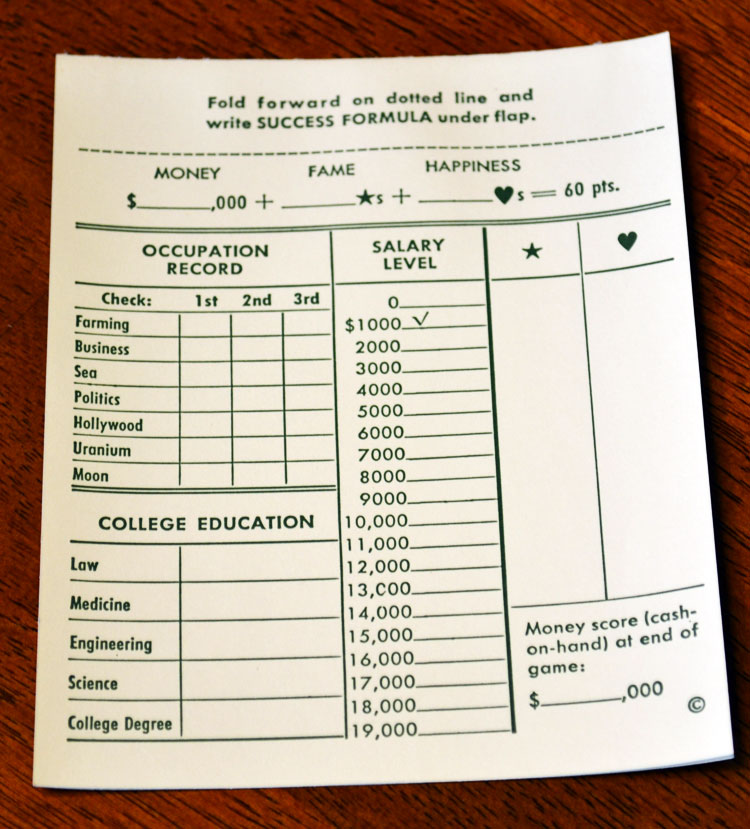 Fold forward on dotted line and
write SUCCESS FORMULA under flap.
MONEY FAME HAPPINESS
$______,000 + ______★s + ______♥s = 60 pts.
OCCUPATION
RECORD
Check: 1st 2nd 3rd
Farming
Business
Sea
Politics
Hollywood
Uranium
Moon
COLLEGE EDUCATION
Law
Medicine
Engineering
Science
College Degree
SALARY
LEVEL
0
$1000 ✓
2000
3000
4000
5000
6000
7000
8000
9000
10,000
11,000
12,000
13,000
14,000
15,000
16,000
17,000
18,000
19,000
★ ♥
Money score (cash-
on-hand) at end of
game:
$______,000
©